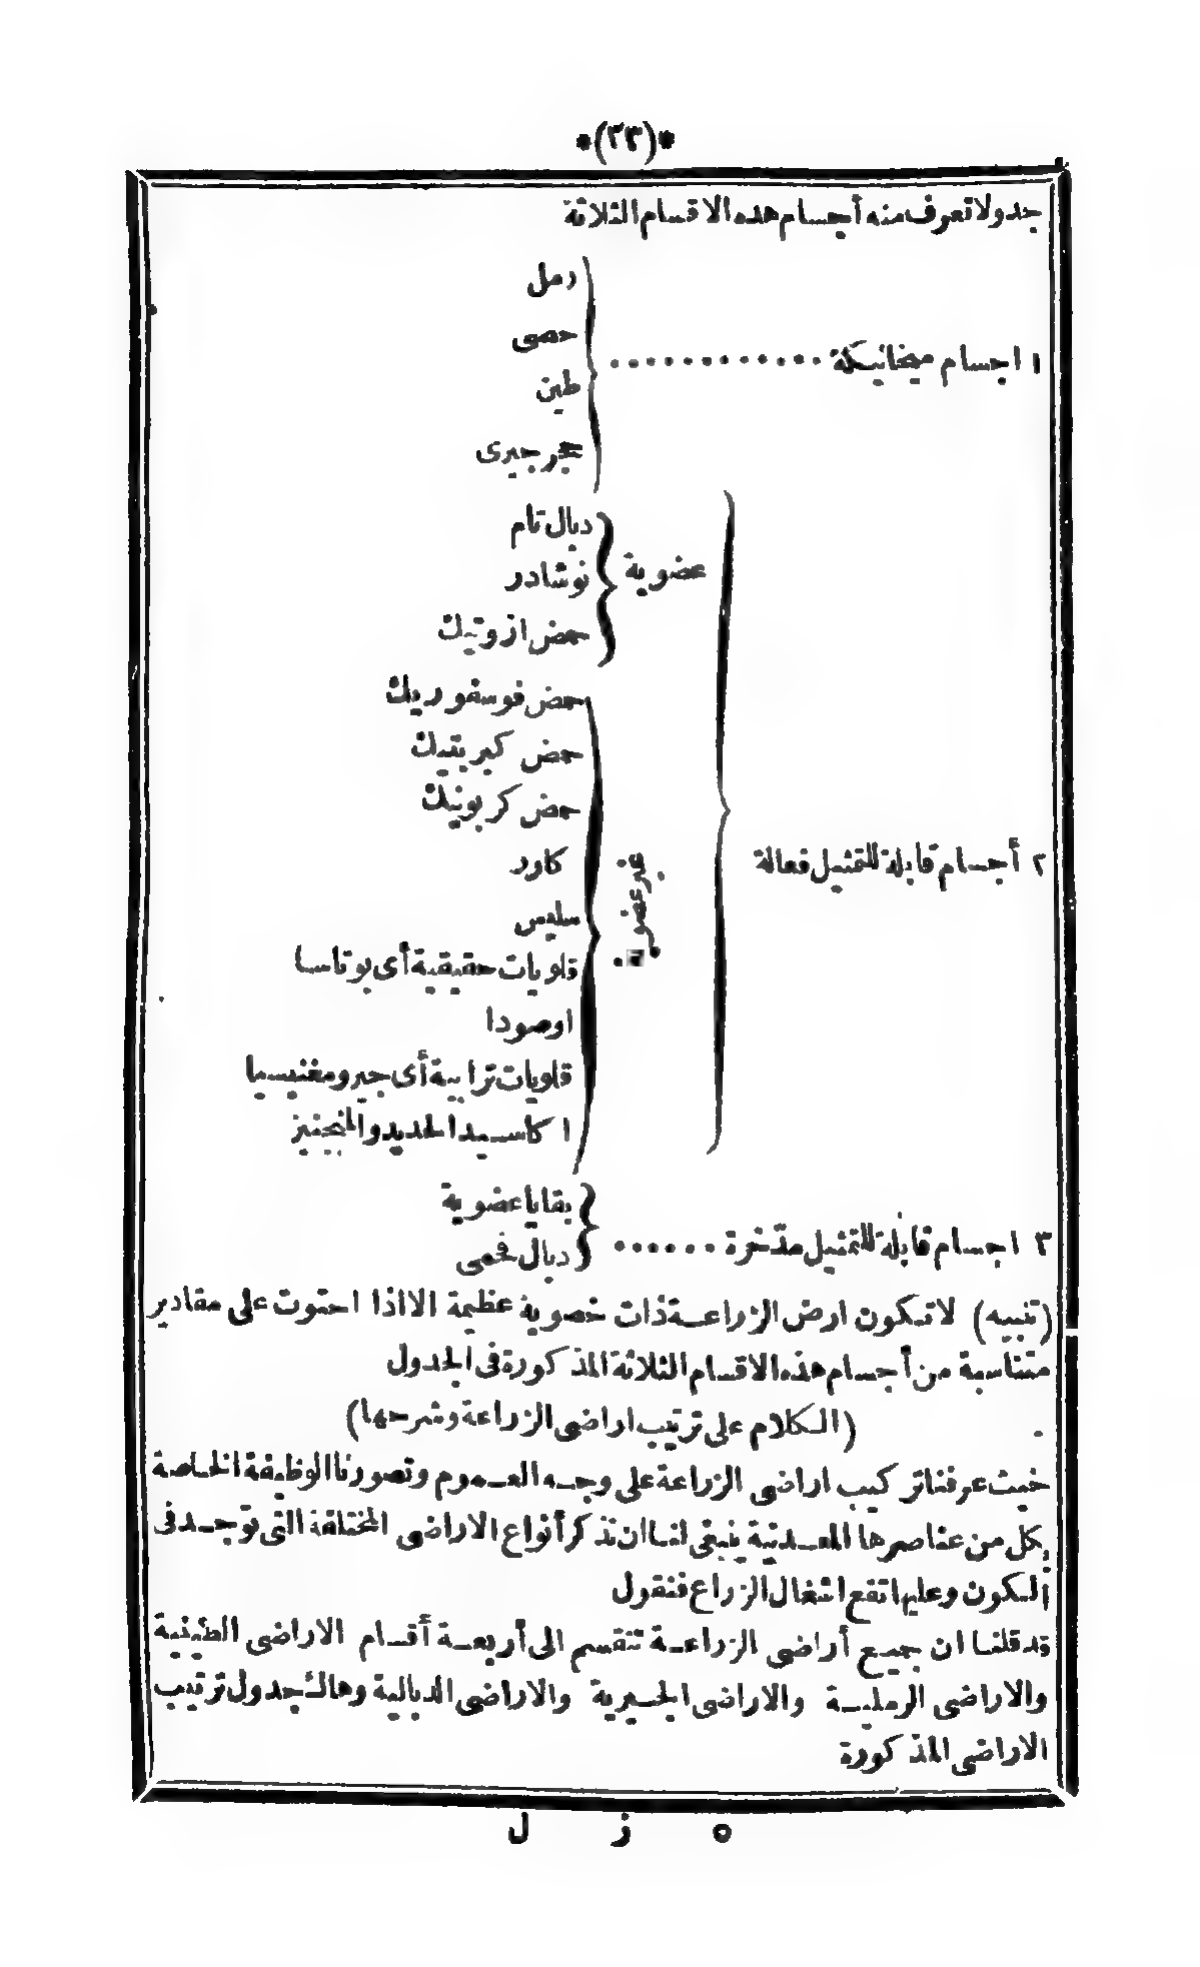 *(٣٣)*
جدولا تعرف منه أجسام هذه الاقسام الثلاثة
١ اجسام ميخانيكية ............
رمل
حصى
طين
حجر جيرى
٢ أجسام قابلة للتمثيل فعالة
عضوية
دبال تام
نوشادر
حمض ازوتيك
غير عضوية
حمض فوسفوريك
حمض كبريتيك
حمض كربونيك
كلور
سليس
قلويات حقيقية أى بوتاسا
اوصودا
قلويات ترابية أى جير ومغنيسيا
اكاسيد الحديد والمنجنيز
٣ اجسام قابلة للتمثيل مدّخرة ......
بقايا عضوية
دبال فحمى
(تنبيه) لا تكون ارض الزراعة ذات خصوبة عظيمة الا اذا احتوت على مقادير
متناسبة من أجسام هذه الاقسام الثلاثة المذكورة فى الجدول
(الكلام على ترتيب اراضى الزراعة وشرحها)
حيث عرفنا تركيب اراضى الزراعة على وجه العموم وتصورنا الوظيفة الخاصة
بكل من عناصرها المعدنية ينبغى لنا ان نذكر أنواع الاراضى المختلفة التى توجد فى
الكون وعليها تقع اشغال الزراع فنقول
قد قلنا ان جميع أراضى الزراعة تنقسم الى أربعة أقسام الاراضى الطينية
والاراضى الرملية والاراضى الجيرية والاراضى الدبالية وهاك جدول ترتيب
الاراضى المذكورة
٥ ز ل